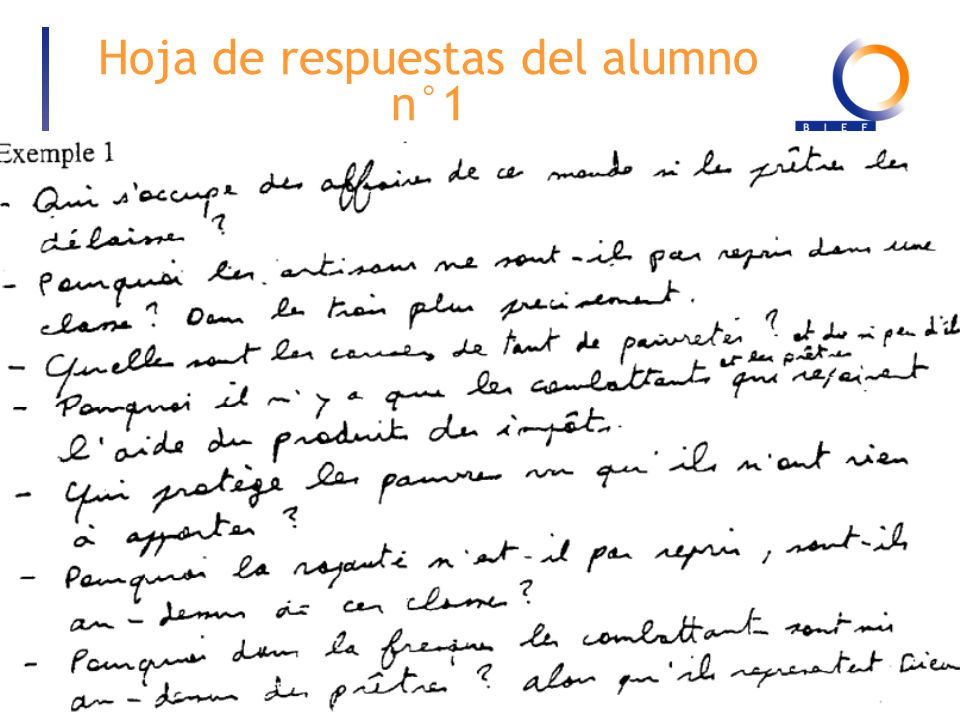 Hoja de respuestas del alumno
n°1
B I E F
Exemple 1
- Qui s'occupe des affaires de ce monde si les prêtres les
délaisse ?
- Pourquoi les artisans ne sont-ils pas repris dans une
classe ? Dans les trois plus precisement.
- Quelle sont les causes de tant de pauvretés ? et de si peu d'
et les prêtres
- Pourquoi il n'y a que les combattants qui reçoivent
l'aide du produits des impôts.
- Qui protège les pauvres vu qu'ils n'ont rien
à apporter ?
- Pourquoi la royauté n'est-il pas repris, sont-ils
au-dessus de ces classes ?
- Pourquoi dans la fresque les combattants sont mis
au-dessus des prêtres ? alors qu'ils representent Dieu